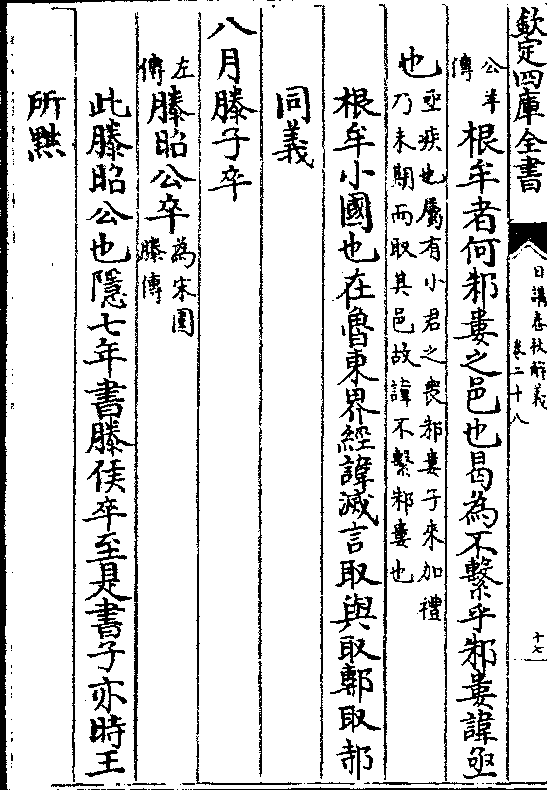 欽定四庫全書
日講春秋解義
卷二十八
十七
公羊
傳
根牟者何邾婁之邑也曷為不繫乎邾婁諱亟
也
亟疾也屬有小君之喪邾婁子來加禮
乃未期而取其邑故諱不繫邾婁也
根牟小國也在魯東界經諱滅言取與取鄟取邿
同義
八月滕子卒
左
傳
滕昭公卒
為宋圍
滕傳
此滕昭公也隱七年書滕侯卒至是書子亦時王
所黜